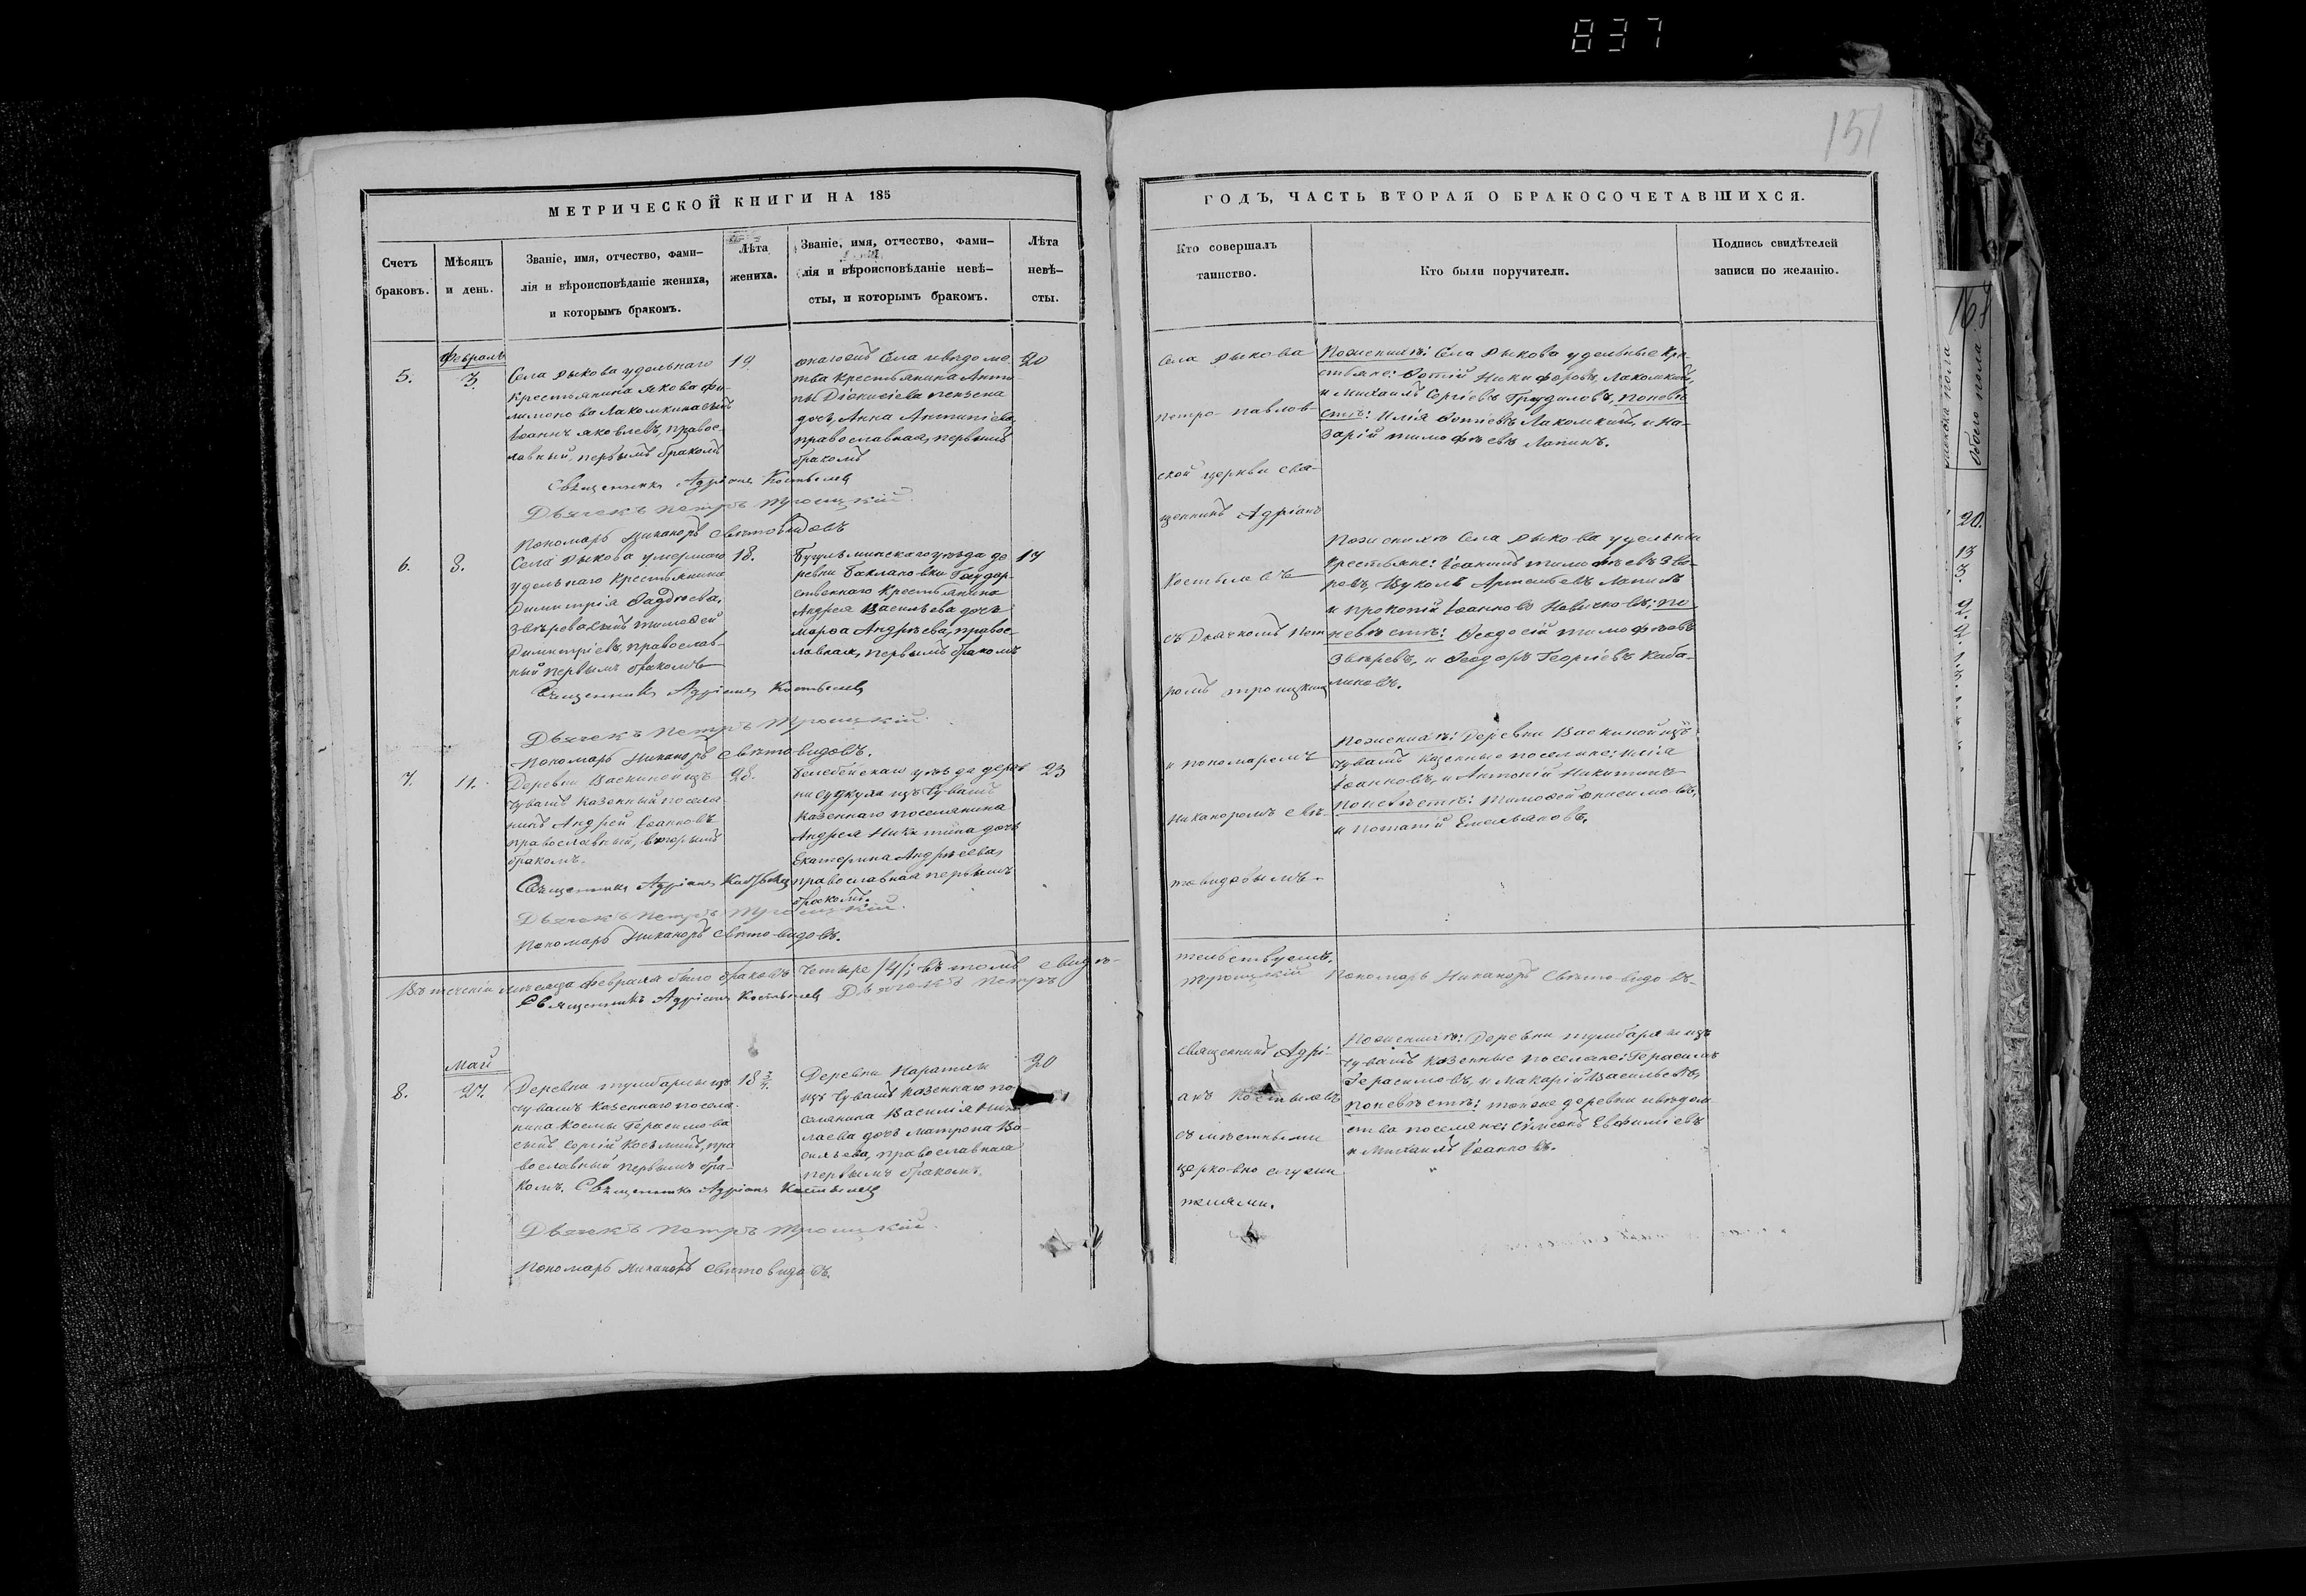 837
151
МЕТРИЧЕСКОЙ КНИГИ НА 185
Счетъ
браковъ.
Мѣсяцъ
и день.
Званіе, имя, отчество, фами-
лія и вѣроисповѣданіе жениха,
и которымъ бракомъ.
Лѣта
жениха.
Званіе, имя, отчество, фами-
лія и вѣроисповѣданіе невѣ-
сты, и которымъ бракомъ.
Лѣта
невѣ-
сты.
5.
Февраль
3.
Села Рыкова удельнаго
крестьянина Якова Фи-
лимонова Лакомкина сынъ
Іоаннъ Яковлевъ, правос-
лавный, первымъ бракомъ
19.
тогоже села и ведомс
тва крестьянина Анти
пы Діонисіева
дочь Анна Антипіева,
православная, первымъ
бракомъ
20
Священникъ Адріанъ Костылев
Дьячекъ Петръ Троицкій.
Пономарь Никаноръ Свѣтовидовъ
6.
8.
Села Рыкова умершаго
удельнаго крестьянина
Димитрія Фаддѣева,
Звѣрева сынъ Тимофей
Димитріевъ, православ-
ный первымъ бракомъ
18.
Бугульминскаго уѣзда де
ревни Баклановки Государ-
ственнаго крестьянина
Андрея Васильева дочь
Марфа Андрѣева, правос-
лавная, первымъ бракомъ
17
Священникъ Адріанъ Костылев
Дьячекъ Петръ Троицкій.
Пономарь Никаноръ Свѣтовидовъ.
7.
11.
Деревни Васкиной изъ
чувашъ казенный поселя
нинъ Андрей Іоанновъ
православный, вторымъ
бракомъ.
28.
Белебейскаго уѣзда дерев
ни изъ чувашъ
казеннаго поселянина
Андрея Никитина дочь
Екатерина Андрѣева,
православная первымъ
бракомъ.
23
Священникъ Адріанъ Костылев
Дьячекъ Петръ Троицкій.
Пономарь Никаноръ Свѣтовидовъ.
Въ теченіи мѣсяца Февраля было браковъ четыре /4/; въ томъ свидѣ-
Священникъ Адріанъ Костылев Дьячекъ Петръ
8.
Май
27.
Деревни изъ
чувашъ казеннаго поселя
нина Космы Герасимова
сынъ Сергій Косьминъ, пра
вославный первымъ бра-
комъ.
18 3/4.
Деревни
изъ чувашъ казеннаго по
селянина Василія Нико
лаева дочь Матрона Ва-
сильева, православная
первымъ бракомъ.
20
Священникъ Адріанъ Костылев
Дьячекъ Петръ Троицкій.
Пономарь Никаноръ Свѣтовидовъ.
ГОДЪ, ЧАСТЬ ВТОРАЯ О БРАКОСОЧЕТАВШИХСЯ.
Кто совершалъ
таинство.
Кто были поручители.
Подпись свидѣтелей
записи по желанію.
Села Рыкова
Петро-Павлов-
ской церкви свя-
щенникъ Адріанъ
Костылевъ
съ Дьячкомъ Пет
ромъ Троицкимъ
и пономаремъ
Никаноромъ Свѣ-
товидовымъ.
По женихѣ: Села Рыкова удельные кре
стьяне: Фотій Никифоровъ Лакомкинъ,
и Михаилъ Сергіевъ Грудиловъ, по невѣ
стѣ: Илія Фотіевъ Лакомкинъ, и На-
зарій Тимофѣевъ Лапинъ.
По женихѣ Села Рыкова удельные
крестьяне: Іоакимъ Тимофѣевъ Звѣ-
ревъ, Вуколъ Артемьевъ Лапинъ
и Прокопій Іоанновъ по
невѣстѣ: Феодосій Тимофѣевъ
Звѣревъ, и Феодоръ Георгіевъ Каба-
линовъ.
По женихѣ: Деревни Васкиной изъ
чувашъ казенные поселяне: Илія
Іоанновъ, и Антоній Никитинъ
По невѣстѣ: Тимофей Анисимовъ,
и Потапій Емельяновъ.
тельствуемъ.
Троицкій Пономарь Никаноръ Свѣтовидовъ
Священникъ Адрі-
анъ Костылевъ
съ мѣстными
церковно служи
телями.
По женихѣ: Деревни изъ
чувашъ казенные поселяне: Герасимъ
Герасимовъ, и Макарій Васильевъ,
По невѣстѣ: тойже деревни и ведом
ства поселяне: Симеонъ Евфиміевъ
и Михаилъ Іоанновъ.
Обоего пола
20.
13
3.
2.
2.